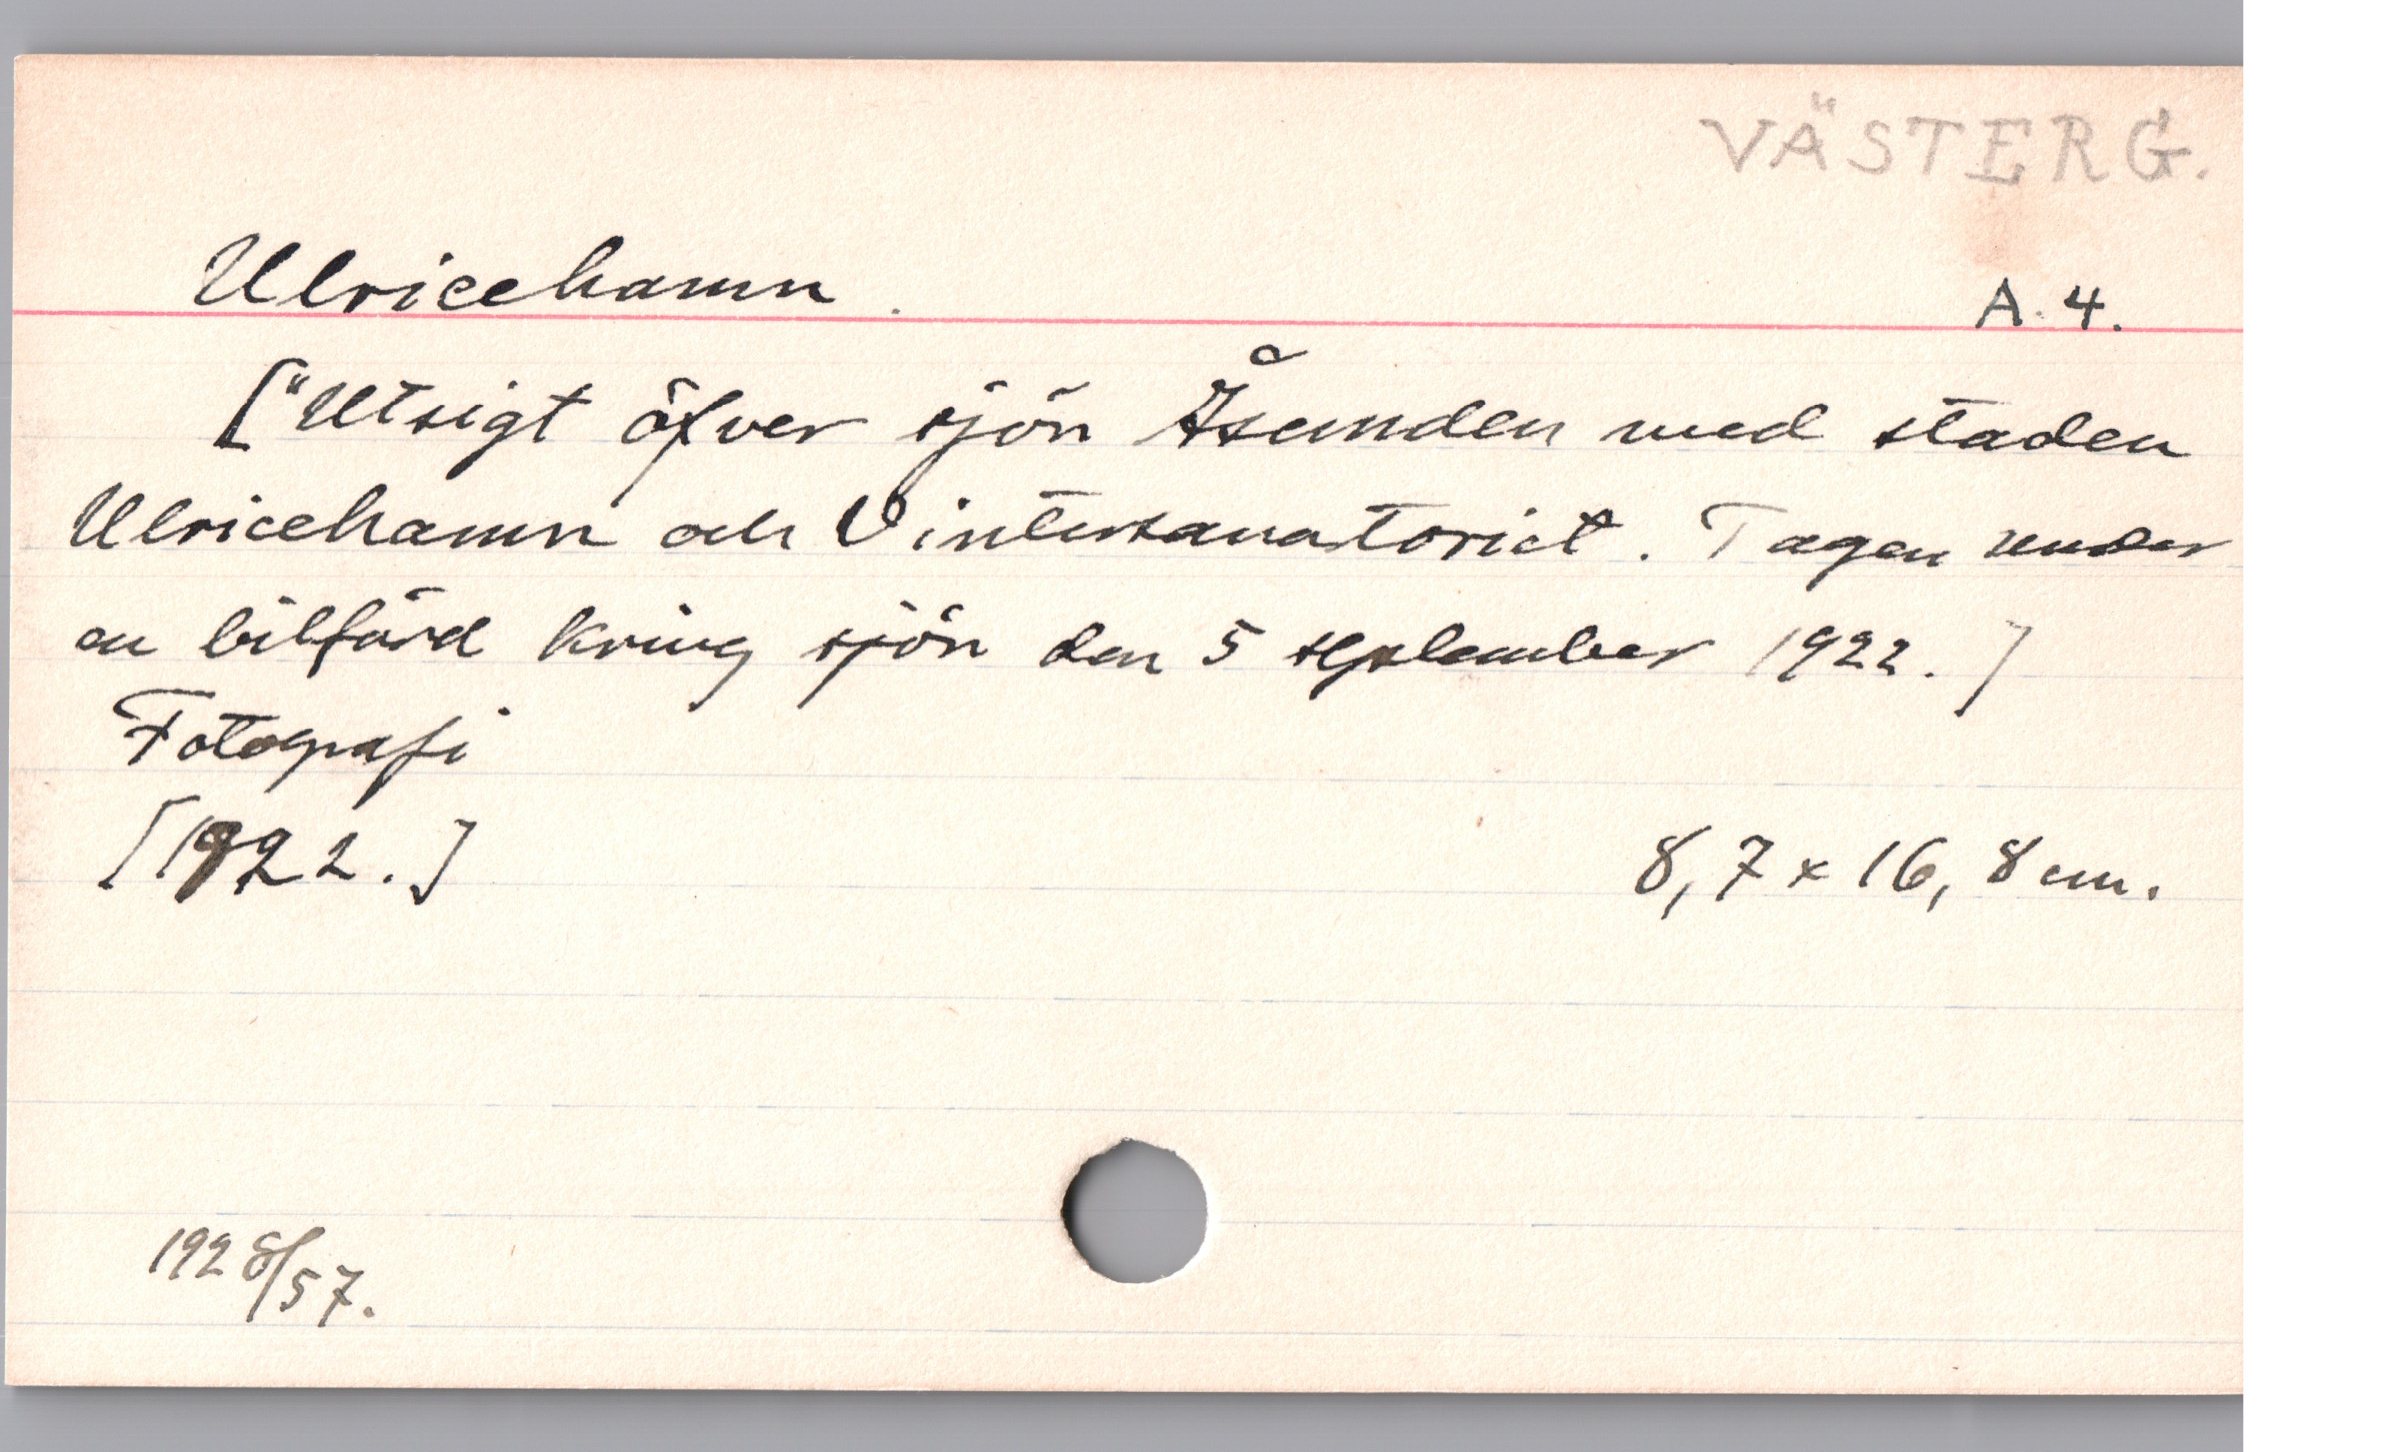 VÄSTERG.
Ulricehamn.
A. 4.
["Utsigt öfver sjön Åsunden med staden
Ulricehamn och Vintersanatoriet. Tagen under
en bilfärd kring sjön den 5 september 1922.]
Fotografi
[1922.]
8,7 x 16,8 cm.
1928/57.